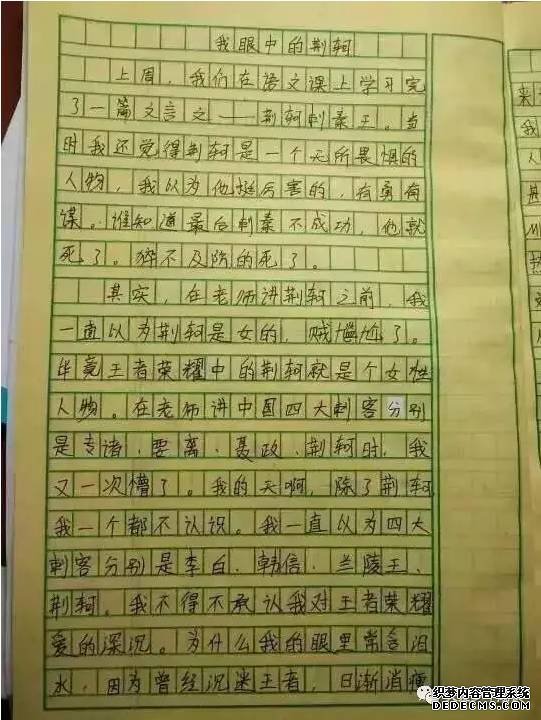 我眼中的荆轲
上周，我们在语文课上学习完
了一篇文言文——荆轲刺秦王。当
时我还觉得荆轲是一个无所畏惧的
人物，我以为他挺厉害的，有勇有
谋。谁知道最后刺秦不成功，他就
死了。猝不及防的死了。
其实，在老师讲荆轲之前，我
一直以为荆轲是女的，贼尴尬了。
毕竟王者荣耀中的荆轲就是个女性
人物。在老师讲中国四大刺客分别
是专诸、要离、聂政、荆轲时，我
又一次懵了。我的天啊，除了荆轲
我一个都不认识。我一直以为四大
刺客分别是李白、韩信、兰陵王、
荆轲。我不得不承认我对王者荣耀
爱的深沉。为什么我的眼里常含泪
水，因为曾经沉迷王者，日渐消瘦
来
我
人
织梦内容管理系统
DEDECMS.COM